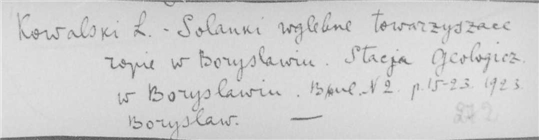 Kowalski Ł. - Solanki wgłebne towarzyszące
ropie w Borysławiu. Stacja Geologicz.
w Borysławiu. N 2. p. 15-23. 1923.
Borysław. —
272